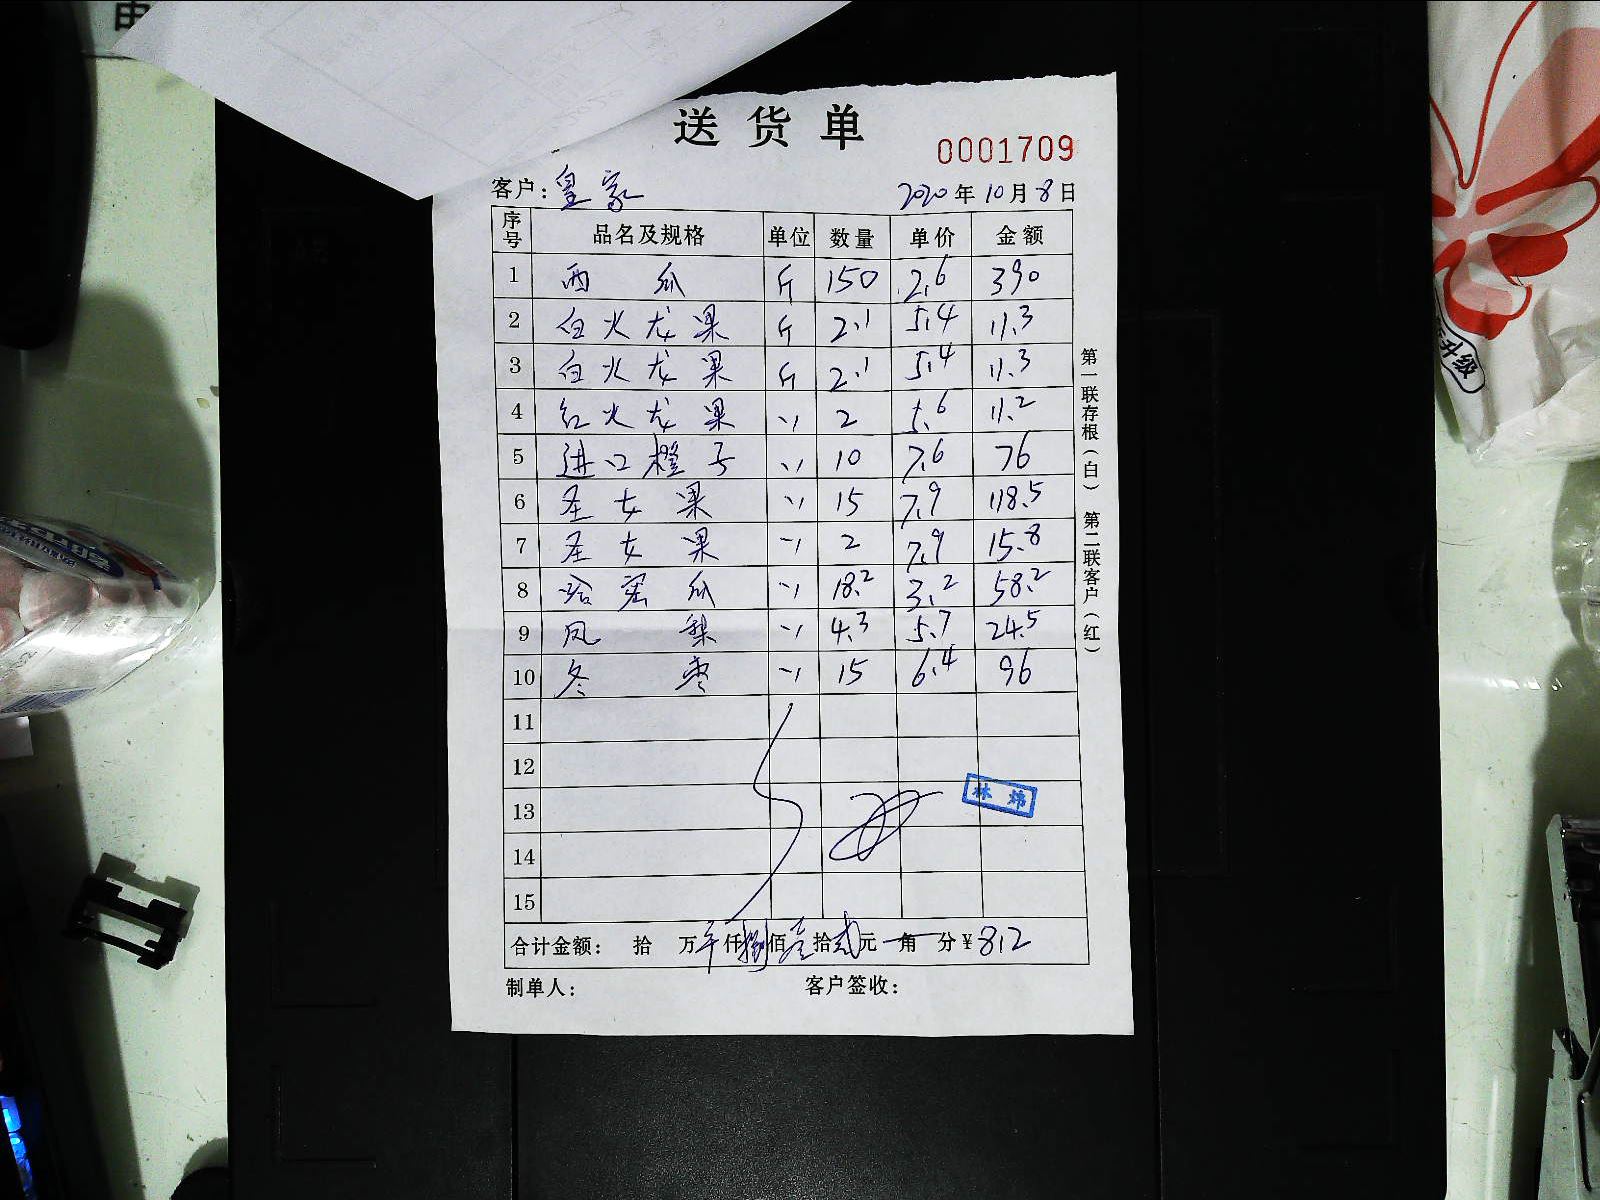 送货单
0001709
客户:皇家 2020年10月8日
序号 品名及规格 单位 数量 单价 金额
1 西瓜 斤 150 2.6 390
2 白火龙果 斤 2.1 5.4 11.3
3 白火龙果 斤 2.1 5.4 11.3
4 红火龙果 〃 2 5.6 11.2
5 进口橙子 〃 10 7.6 76
6 圣女果 〃 15 7.9 118.5
7 圣女果 〃 2 7.9 15.8
8 哈密瓜 〃 18.2 3.2 58.2
9 凤梨 〃 4.3 5.7 24.5
10 冬枣 〃 15 6.4 96
11
12
13
林炜
14
15
合计金额: 拾 万 仟捌佰壹拾贰元 角 分¥812
制单人: 客户签收:
第一联存根(白) 第二联客户(红)
升级